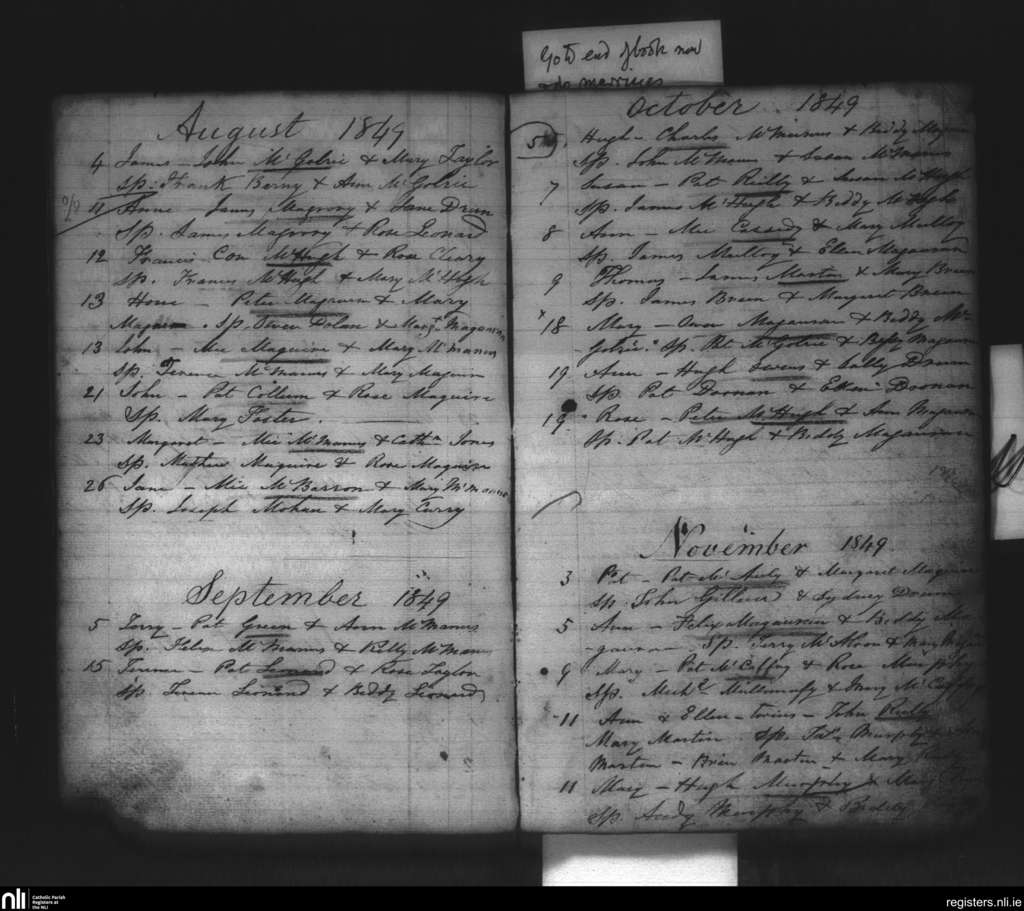 Go to end of book now
marriages
August 1849
4 James - John McGolric & Mary Taylor
Sp: Frank Berny & Ann McGolric
11 Anne - James Magrory & Jane Drum
Sp. James Magrory & Rose Leonard
12 Francis Con McHugh & Rose Cleary
Sp. Francis McHugh & Mary McHugh
13 - Peter & Mary
Sp. Owen Dolan & Magauran
13 John - Mic Maguire & Mary McManus
Sp. Terence McManus & Mary Maguire
21 John - Pat Collum & Rose Maguire
Sp. Mary Foster.
23 Margaret - Mic McManus & Cathn Jones
Sp. Matthew Maguire & Rose Maguire
26 Jane - Mic McBarron & Mary McManus
Sp. Joseph Mohan & Mary Curry
September 1849
5 Terry - Pat Green & Ann McManus
Sp. McManus & McManus
15 Terence - Pat Leonard & Rose Taylor
Sp. Terence Leonard & Biddy Leonard
October 1849
5 Hugh - Charles McManus & Biddy
Sp. John McManus & Susan McManus
7 Susan - Pat Reilly & Susan McHugh
Sp. James McHugh & Biddy McHugh
8 Ann - Mic Cassidy & Mary Mulloy
Sp. James Mulloy & Ellen Magauran
9 Thomas - James Martin & Mary Breen
Sp. James Breen & Margaret Breen
x 18 Mary - Owen Magauran & Biddy Mc
Golric. Sp. Pat McGolric & Magauran
19 Ann - Hugh Owens & Sally Drum
Sp. Pat Doonan & Ellen Doonan
19 Rose - Peter McHugh & Ann Magauran
Sp. Pat McHugh & Biddy Magauran
November 1849
3 Pat - Pat & Margaret
Sp. John & Sydney Drum
5 Ann - Felix Magauran & Biddy
Sp. Terry & Mary
9 Mary - Pat McCaffry & Rose Murphy
Sp. Mich & Mary McCaffry
11 Ann & Ellen - twins - John Reilly
Mary Martin. Sp. Murphy &
Martin - Brien Martin & Mary
11 Mary - Hugh Murphy & Mary
Sp. Andy Murphy & Biddy
nli
Catholic Parish
Registers at
the NLI
registers.nli.ie